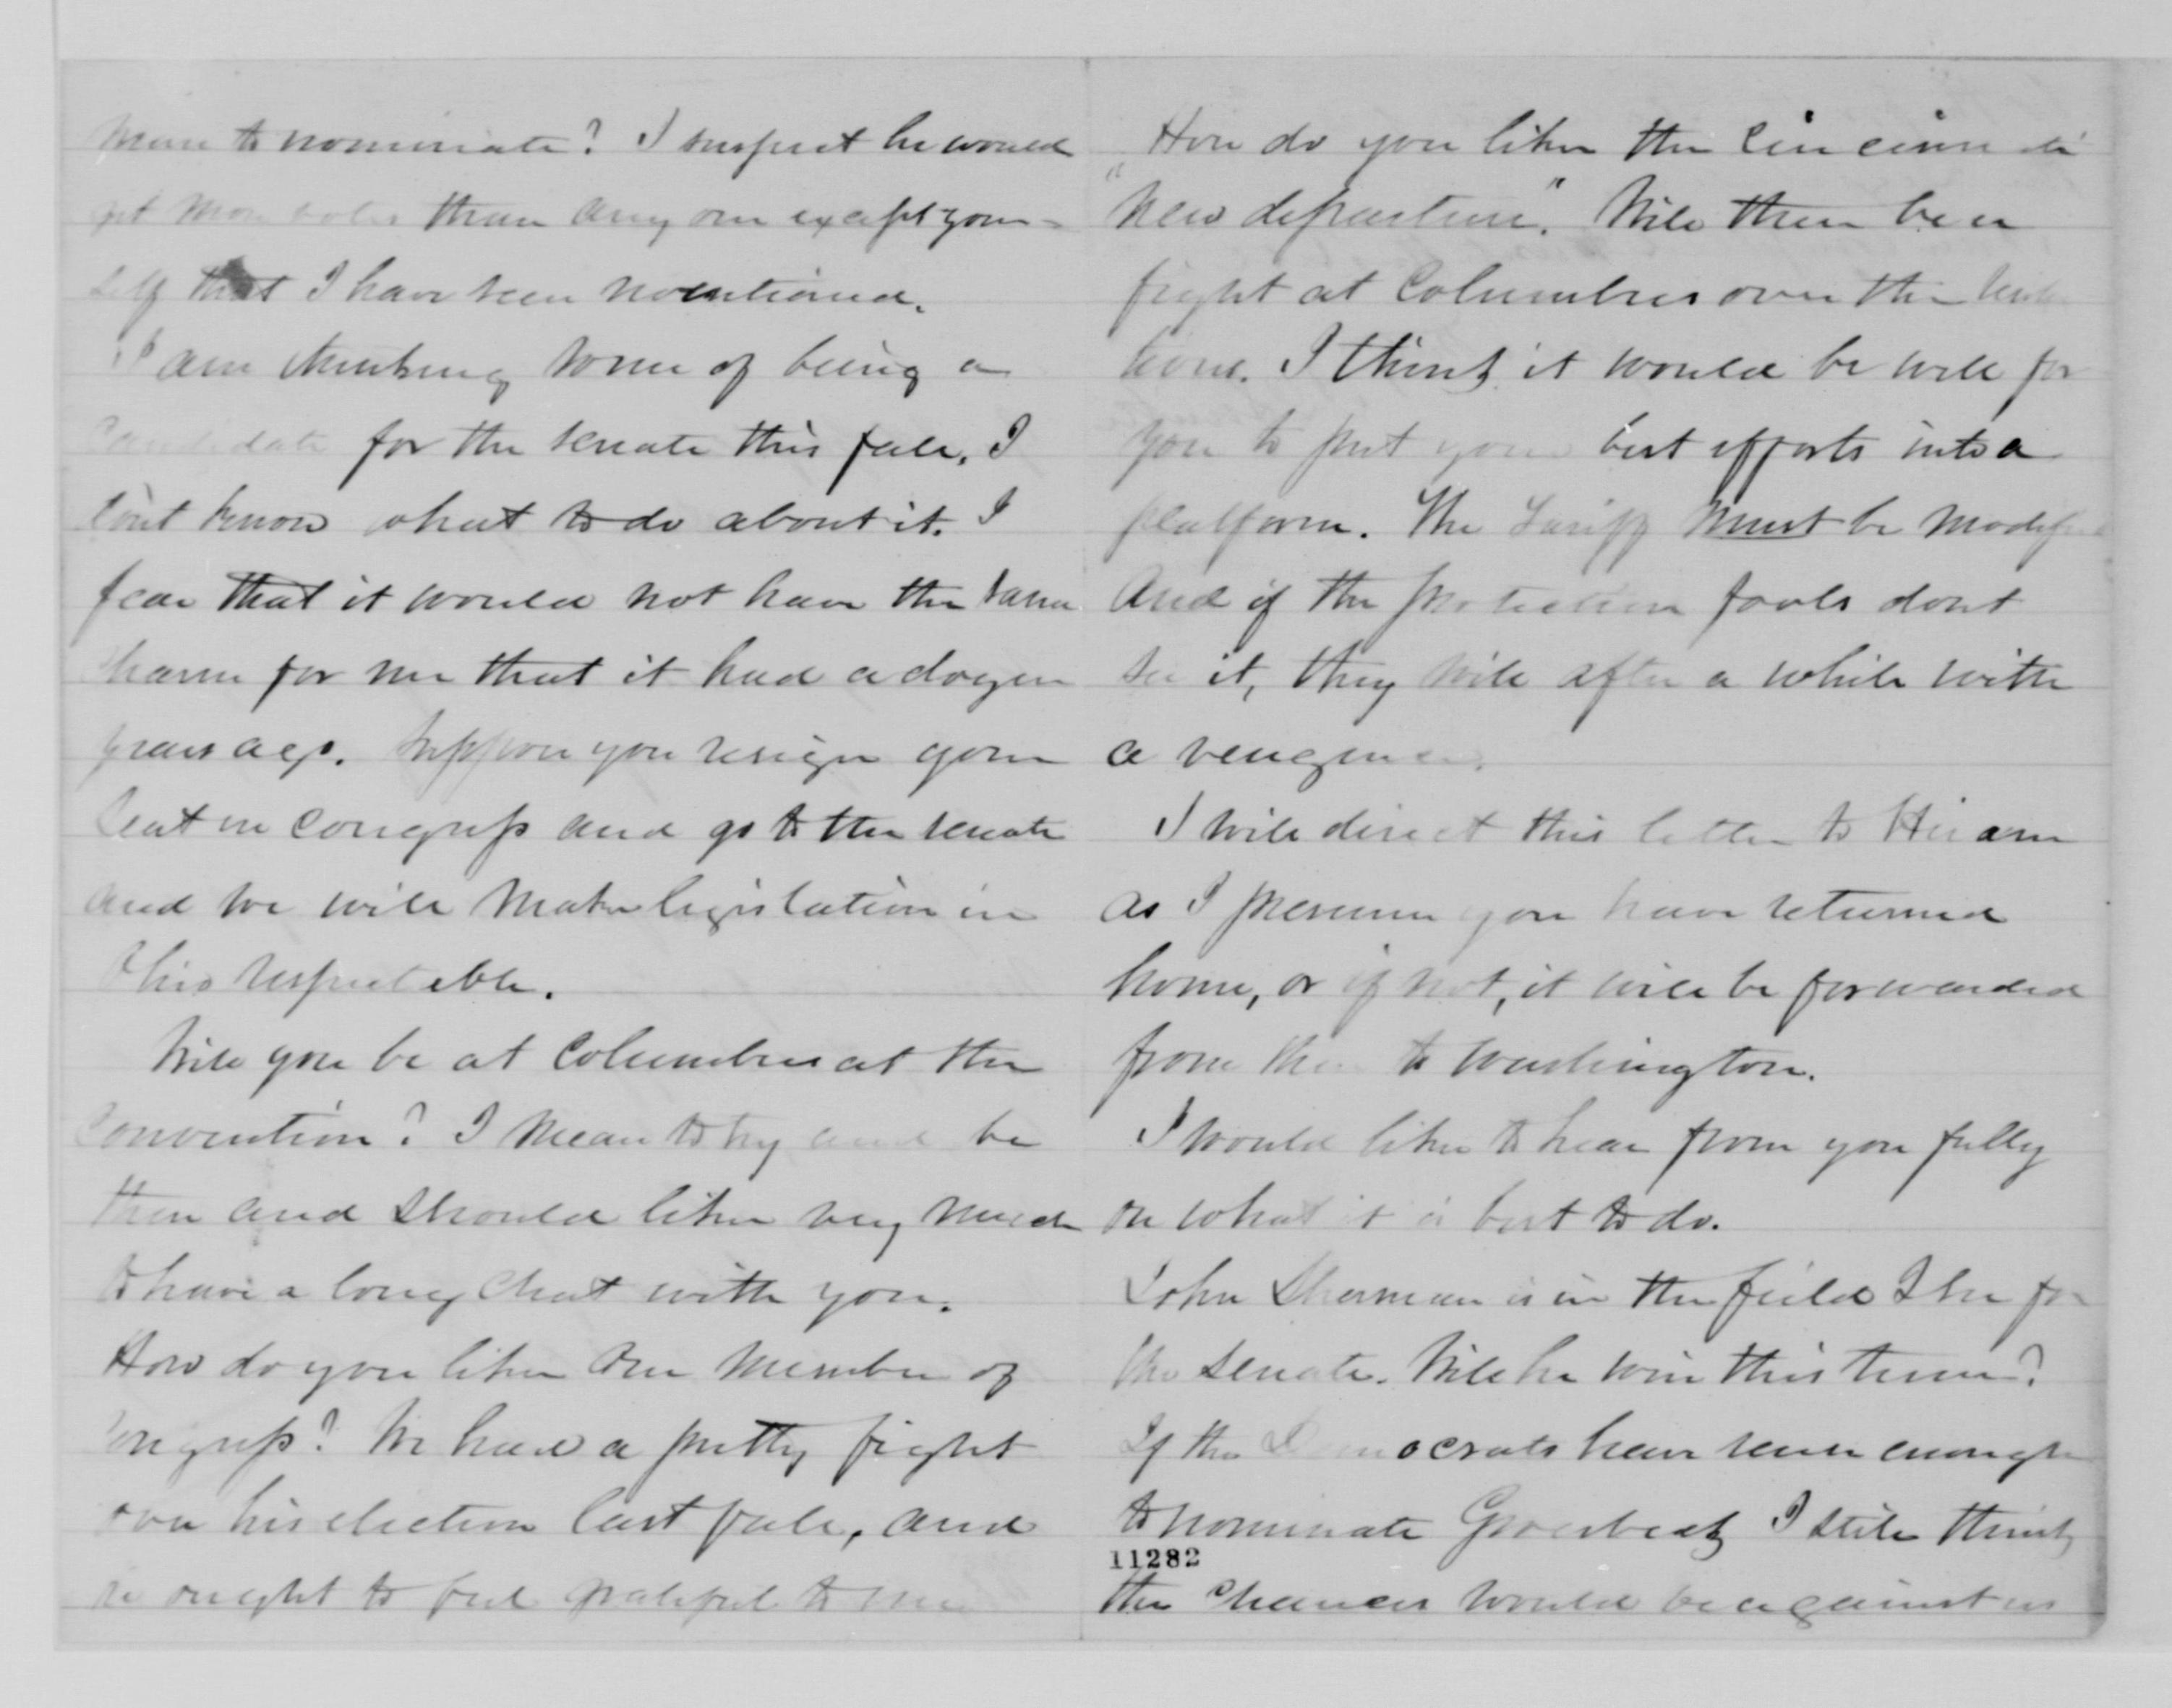 man to nominate? I suspect he would
get more votes than any one except your-
self that I have seen mentioned.
I am thinking some of being a
candidate for the senate this fall. I
dont know what to do about it. I
fear that it would not have the same
charm for me that it had a dozen
years ago. Suppose you resign your
seat in congress and go to the senate
and we will make legislation in
Ohio respectable.
Will you be at Columbus at the
convention? I mean to try and be
there and should like very much
to have a long chat with you.
How do you like our member of
congress? We had a pretty fight
over his election last fall, and
he ought to feel grateful to me
How do you like the Cincinnati
"new departure". Will there be a
fight at Columbus over the
I think it would be well for
you to put your best efforts into a
platform. The Tariff must be modified
and if the protection fools dont
see it, they will after a while with
a vengence.
I will direct this letter to Hiram
as I presume you have returned
home, or if not, it will be forwarded
from there to Washington.
I would like to hear from you fully
on what it is best to do.
John Sherman is in the field I see for
the senate. Will he win this time?
If the Democrats have sense enough
to nominate Groesbeck I still think
11282
the chances would be against us